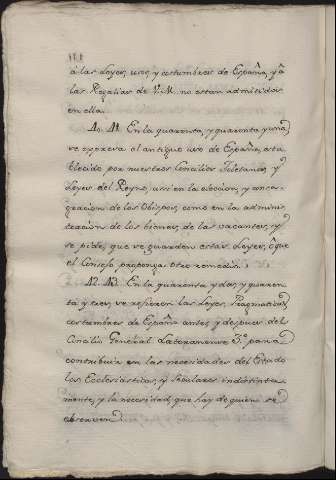 à las Leyes, usos, y costumbres de España, y à
las Regalias de V.M. no estan admitidas
en ella.
40. 41. En la quarenta, y quarenta y una,
se expresa el antiguo uso de España, esta
blecido por nuestros Concilios Toledanos, y
Leyes del Reyno, assi en la eleccion, y consa-
gracion de los Obispos, como en la adminis-
tracion de los bienes de las vacantes, y
se pide, que se guarden estas Leyes, ò que
el Consejo proponga otro remedio.
42. 43. En la quarenta y dos, y quaren
ta y tres, se refieren las Leyes, Pragmaticas
costumbres de España antes, y despues del
Concilio General Lateranense 3. para
contribuir en las necesidades del Estado
los Ecclesiasticos, y Seculares indistinta
mente, y la necesidad, que hay de que se
observen